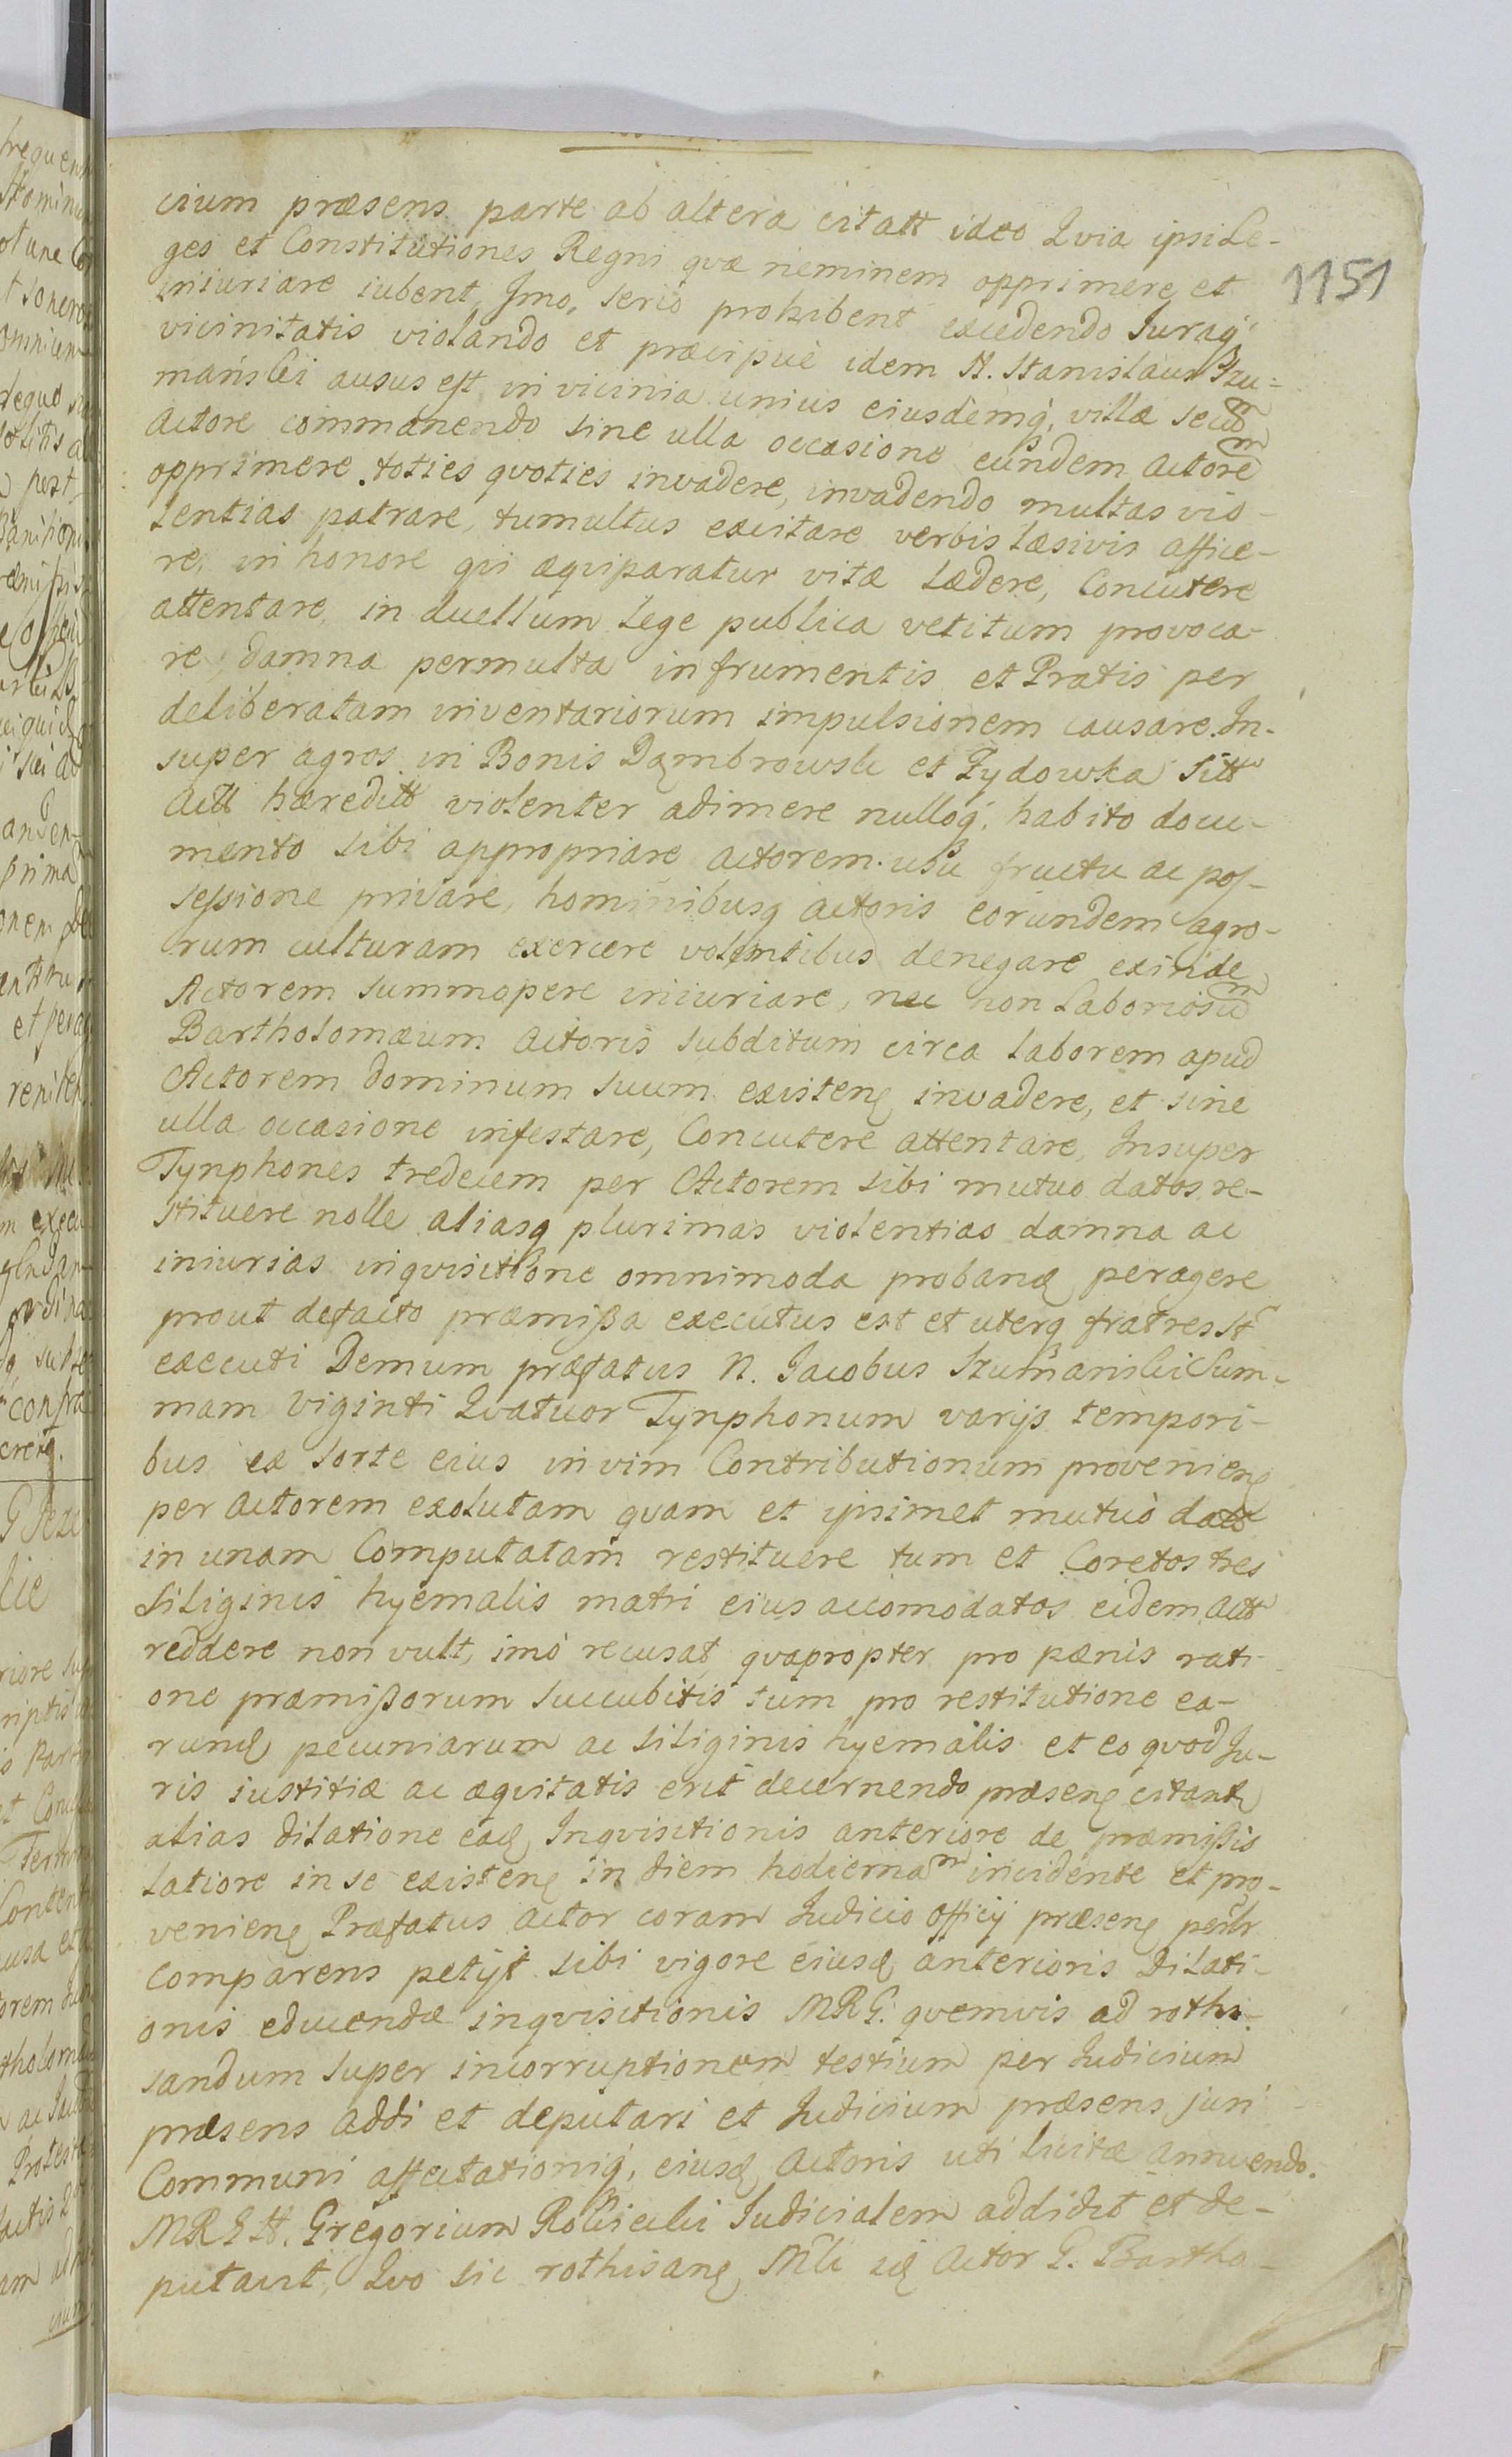 1151
cium præsens parte ab altera citatt ideo Qvia ipsi Le-
ges et Constitutiones Regni qvæ neminem opprimere et
iniuriare iubent, Imo, serio prohibent excedendo Iuraq,
vicinitatis violando et præcipuè idem N. Stanislaus Szu-
mański ausus est in vicinia unius eiusdemq, villæ secum
Actore commanendo sine ulla occasione eundem Actorem
opprimere toties qvoties invadere, invadendo multas vio-
lentias patrare, tumultus excitare verbis læsivis affice-
re, in honore qvi æqviparatur vitæ lædere, Concutere
attentare, in duellum Lege publica vetitum provoca-
re, damna permulta in frumentis et Pratis per
deliberatam inventariorum impulsionem causare. In-
super agros in Bonis Dąmbrowski et Zydowka sitt
Actt hæreditt violenter adimere nulloq, habito docu-
mento sibi appropriare Actorem usu fructu ac pos-
sessione privare, hominibusq Actoris eorundem agro-
rum culturam exercere volentibus denegare exinde
Actorem summopere iniuriare, nec non Laboriosum
Bartholomæum Actoris subditum circa laborem apud
Actorem Dominum suum existen invadere, et sine
ulla occasione infestare, Concutere attentare, Insuper
Tynphones tredecem per Actorem sibi mutuo datos re-
stituere nolle aliasq plurimas violentias damna ac
iniurias inqvisitione omnimoda proban peragere
prout de facto præmissa executus est et uterq fratres st
executi Demum præfatus N. Jacobus Szumański Sum-
mam Viginti Qvatuor Tynphonum varijs tempori-
bus ex sorte eius in vim Contributionum provenien
per Actorem exolutam qvam et ipsimet mutuò datt
in unam Computatam restituere tum et Coretos tres
Siliginis hyemalis matri eius accomodatos eidem Actt
reddere non vult, imò recusat, qvapropter pro pænis rati-
one præmissorum succubitis tum pro restitutione ea-
rund pecuniarum ac siliginis hyemalis et eo qvod Ju-
ris iustitiæ ac æqvitatis erit decernendo præsen citant
alias dilatione ead Inqvisitionis anteriore de præmissis
latiore in se existen in diem hodiernam incidente et pro-
venien Præfatus Actor coram Judicio Officij præsen perslr
comparens petijt sibi vigore eiusd anterioris Dilati-
onis educendæ inqvisitionis MRG. qvemvis ad rothi-
sandum super incorruptionem testium per Judicium
præsens addi et deputari et Judicium præsens juri
Communi affectationiq, eiusd Actoris uti licitæ annuendo.
MRG N. Gregorium Judicialem addidit et de-
putavit, Qvo sic rothisan id Actor G. Bartho-